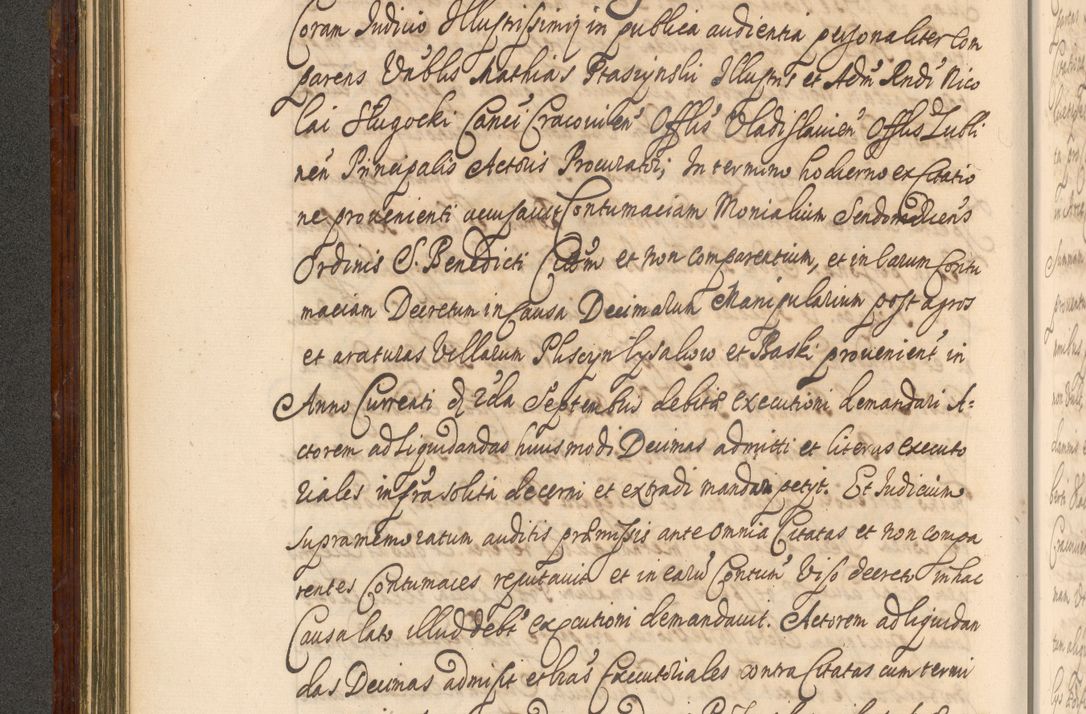 Coram Judicio Illustrissimi in publica audientia personaliter com
parens Vnblis Mathias Ptaszynslii Illustris et Adm Rndi Nico
lai Sługocki Canci Cracovien Offlis Vladislavien Offlis Lubli
nen Principalis Actoris Procurator, In termino hodierno ex Citatio
ne provenienti accusavit Contumaciam Monialium Sendomiriens
Ordinis S. Benedicti Citom et non comparentium, et in earum Contu
maciam Decretum in Causa Decimarum Manipularium post agros
et araturas Villarum Pliscyn Lysalow et Baski provenient in
Anno Currenti d 2da Septembris debita executioni demandari A-
ctorem ad Liquidandas huiusmodi Decimas admitti et literas executo
riales in fra solita decerni et extradi mandari petyt. Et Judicium
supramemoratum auditis præmissis ante omnia Citatas et non compa
rentes Contumaces reputavit et in earu Contum Viso decreto in hac
Causa lato illud debt executioni demandavit. Actorem ad liquidan
das Decimas admisit et lras Executoriales contra Citatas cum termi